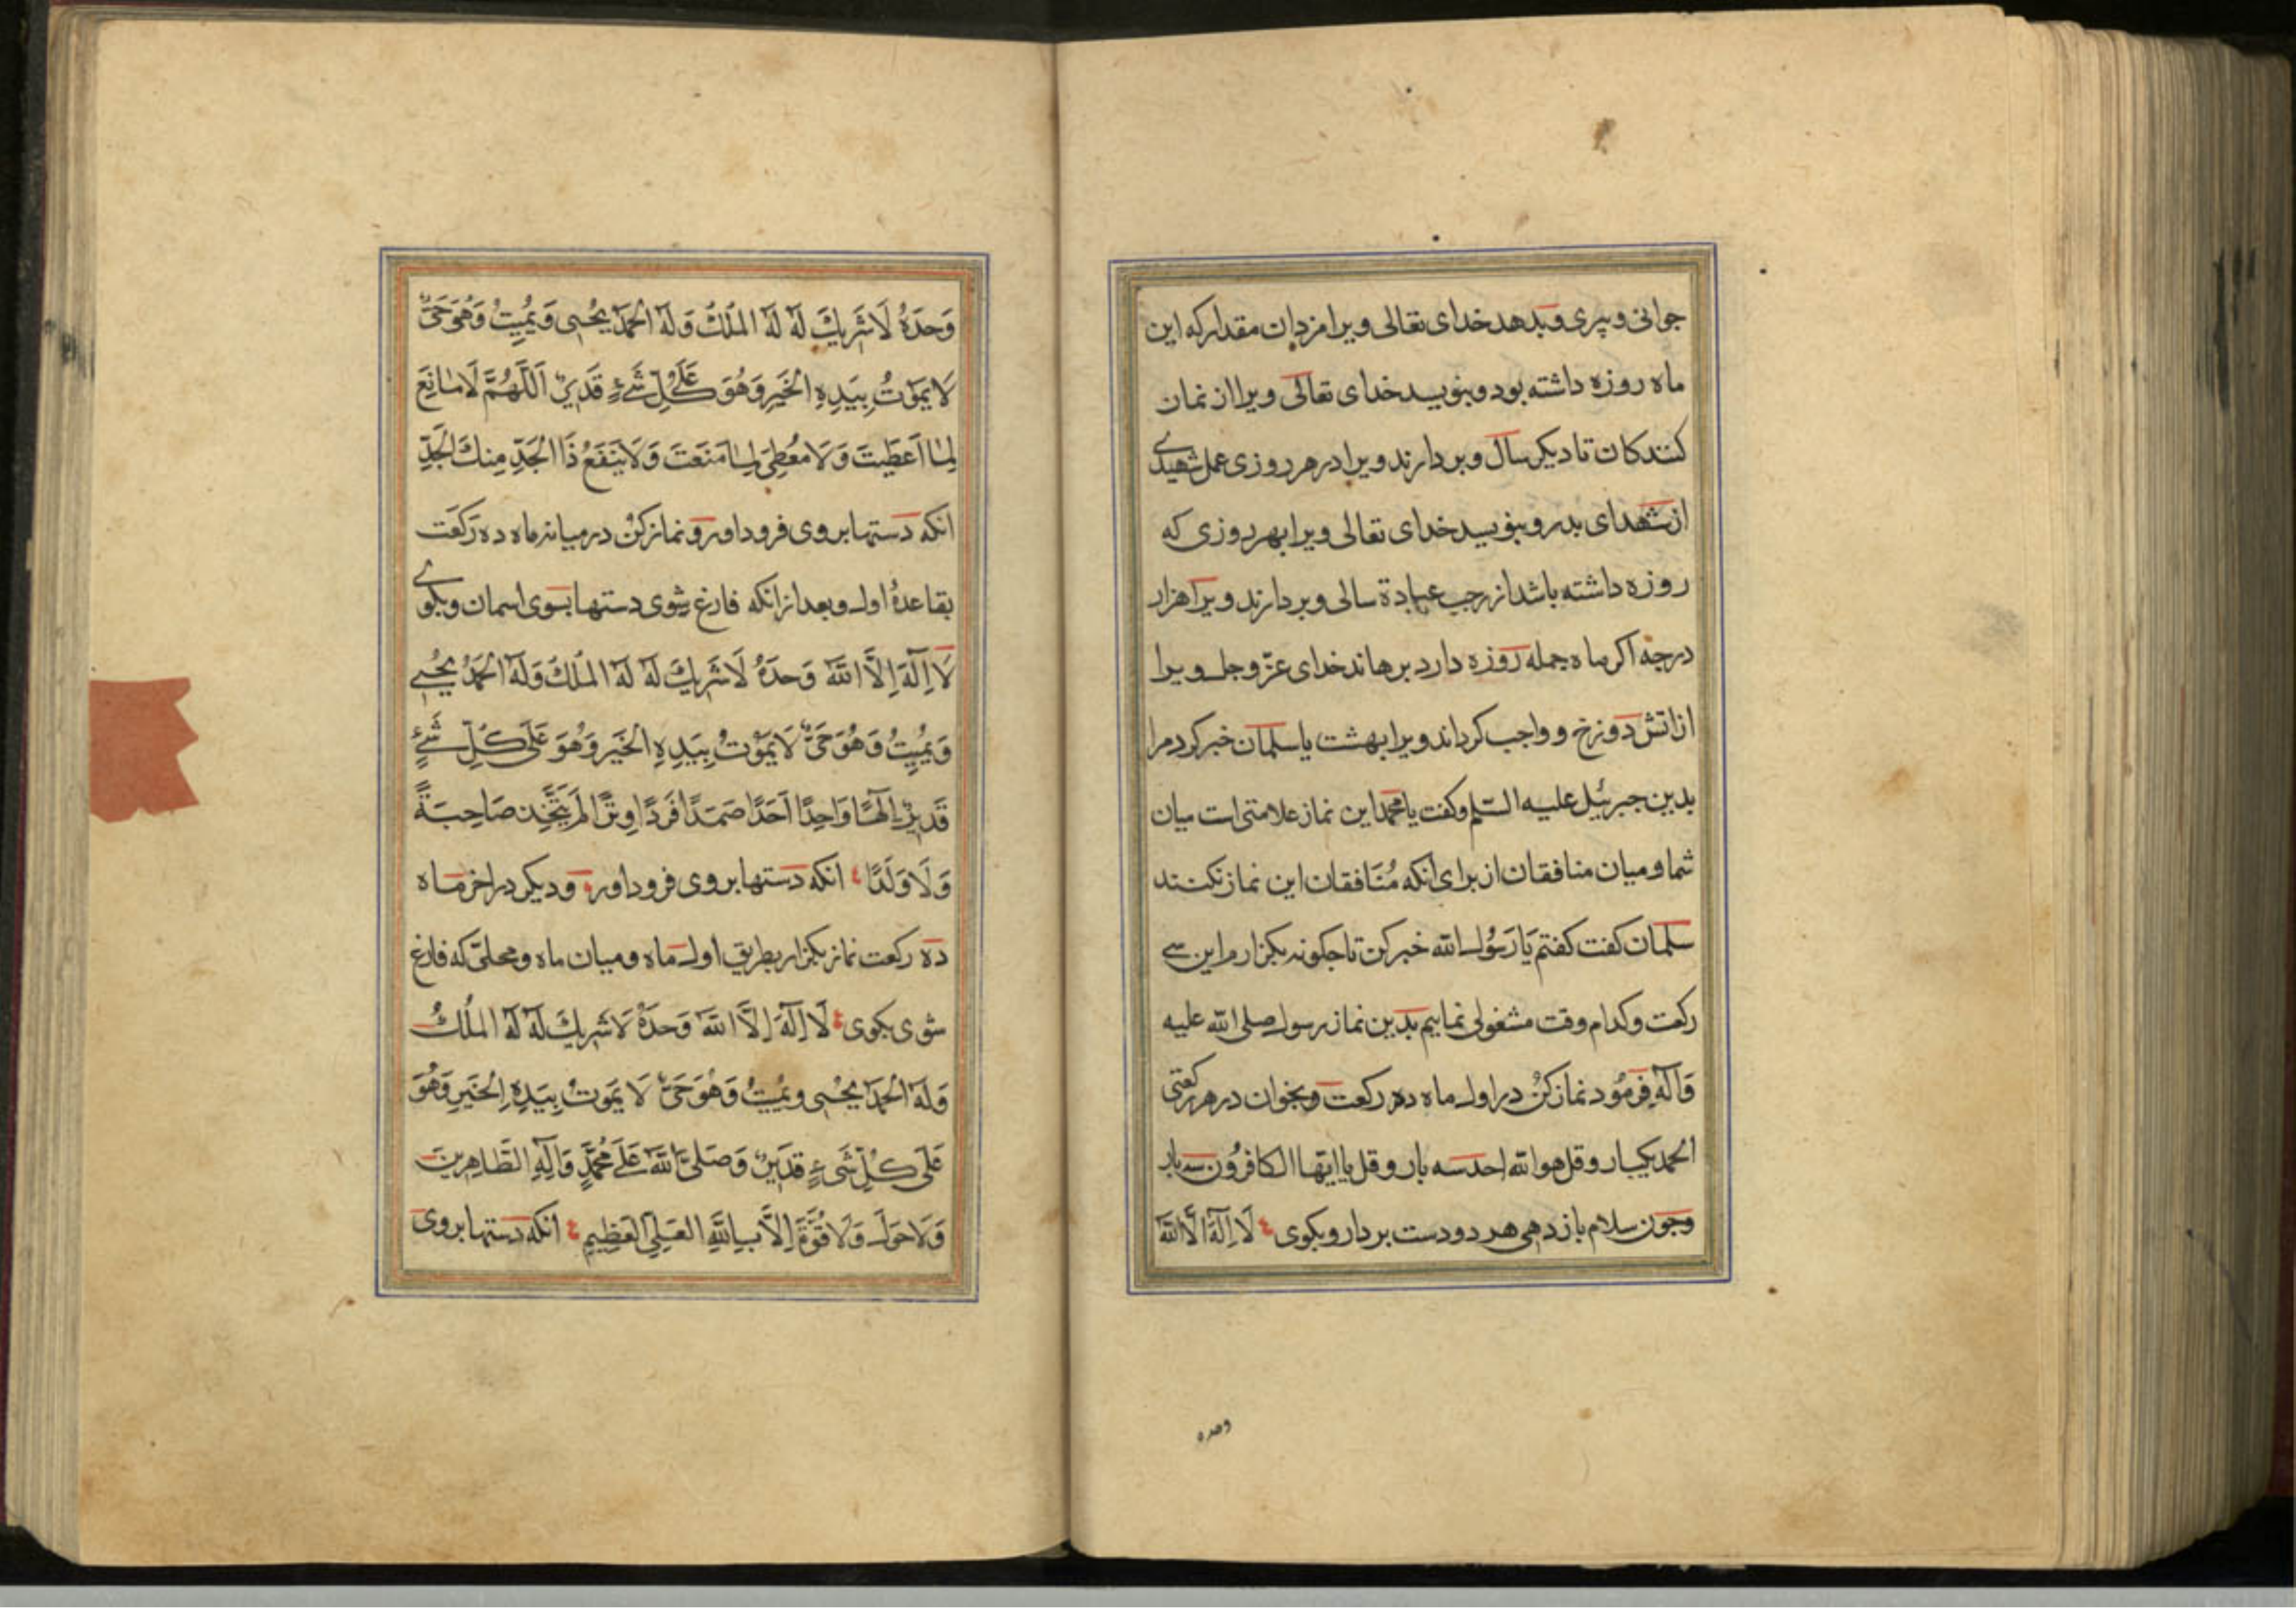 جوانی و پیری و بدهد خدای تعالی ویرا مزد ان مقدار که این
ماه روزه داشته بود و بنویسد خدای تعالی ویرا از نماز
کنندکان تا دیکر سال و بردارند ویرا در هر روزی عمل شهیدی
از شهدای بدر و بنویسد خدای تعالی ویرا بهر روزی که
روزه داشته باشد از رجب عبادة سالی و بردارند ویرا هزار
درجه اکر ماه جمله روزه دارد برهاند خدای عزّ و جل ویرا
از اتش دوزخ و واجب کرداند ویرا بهشت یا سلمان خبر کرد مرا
بدین جبرئیل علیه السّلم و کفت یا محمد این نماز علامتی است میان
شما و میان منافقان از برای انکه مُنَافقان این نماز نکنند
سلمان کفت کفتم یَا رَسُول الله خبر کن تا جکونه بکزارم این سی
رکعت و کدام وقت مشغولی نماییم بدین نماز رسول صلی الله علیه
وَآلِه فرمُود نماز کُن در اول ماه ده رکعت و بخوان در هر رکعتی
الحمد یکبار و قل هو الله احد سه بار و قل یا ایّها الکافرُون سه بار
و جون سلام باز دهی هر دو دست بردار و بکوی لَا اِلَهَ اِلَّا اللَّهَ
وحده
وَحدَهُ لَا شَرِیكَ لَهُ لَهُ المُلكُ وَلَهُ الحَمدُ یُحیِی وَیُمِیتُ وَهُوَ حَیٌّ
لَا یَمُوتُ بِیَدِهِ الخَیرُ وَهُوَ عَلَی کُلِّ شَیءٍ قَدِیرٌ اَللَّهُمَّ لَا مَانِعَ
لِمَا اَعطَیتَ وَلَا مُعطِیَ لِمَا مَنَعتَ وَلَا یَنفَعُ ذَا الجَدِّ مِنكَ الجَدِّ
انکه دستها بروی فرود اور و نماز کن در میانه ماه ده رَکعَت
بقاعدۀ اول و بعد از انکه فارغ شوی دستها بسوی اسمان و بکوی
لَا اِلَهَ اِلَّا اللَّهُ وَحدَهُ لَا شَرِیكَ لَهُ لَهُ المُلكُ وَلَهُ الحَمدُ یُحیِی
وَیُمِیتُ وَهُوَ حَیٌّ لَا یَمُوتُ بِیَدِهِ الخَیرُ وَهُوَ عَلَی کُلِّ شَیءٍ
قَدِیرٌ اِلَهًا وَاحِدًا اَحَدًا صَمَدًا فَردًا وِترًا لَم یَتَّخِذ صَاحِبَةً
وَلَا وَلَدًا انکه دستها بروی فرود اور و دیکر در اخر ماه
ده رکعت نماز بکزار بطریق اول ماه و میان ماه و محلّی که فارغ
شوی بکوی لَا اِلَهَ اِلَّا اللَّهُ وَحدَهُ لَا شَرِیكَ لَهُ لَهُ المُلكُ
وَلَهُ الحَمدُ یُحیِی وَیُمِیتُ وَهُوَ حَیٌّ لَا یَمُوتُ بِیَدِهِ الخَیرِ وَهُوَ
عَلَی کُلِّ شَیءٍ قَدِیرٌ وَصَلَّی اللَّهُ عَلَی مُحَمَّدٍ وَآلِهِ الطَّاهِرِینَ
وَلَا حَولَ وَلَا قُوَّةَ اِلَّا بِاللَّهِ العَلِیِّ العَظِیمِ انکه دستها بروی